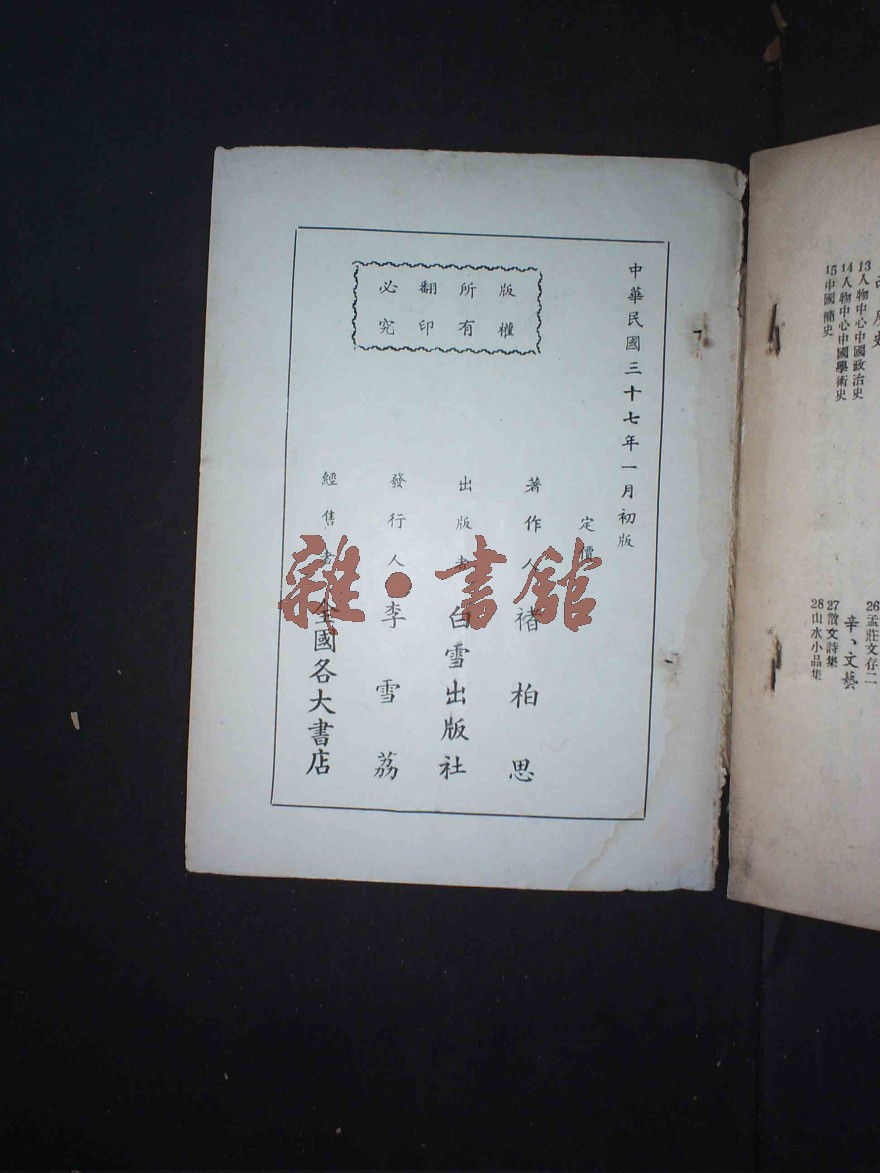 中華民國三十七年一月初版
定價
著作人 褚柏思
出版者 白雪出版社
發行人 李雪荔
經售者 全國各大書店
版權
所有
翻印
必究
雜·書館
13人物中心中國政治史
14人物中心中國學術史
15中國簡史
26孟莊文存二
辛、文藝
27散文詩集
28山水小品集